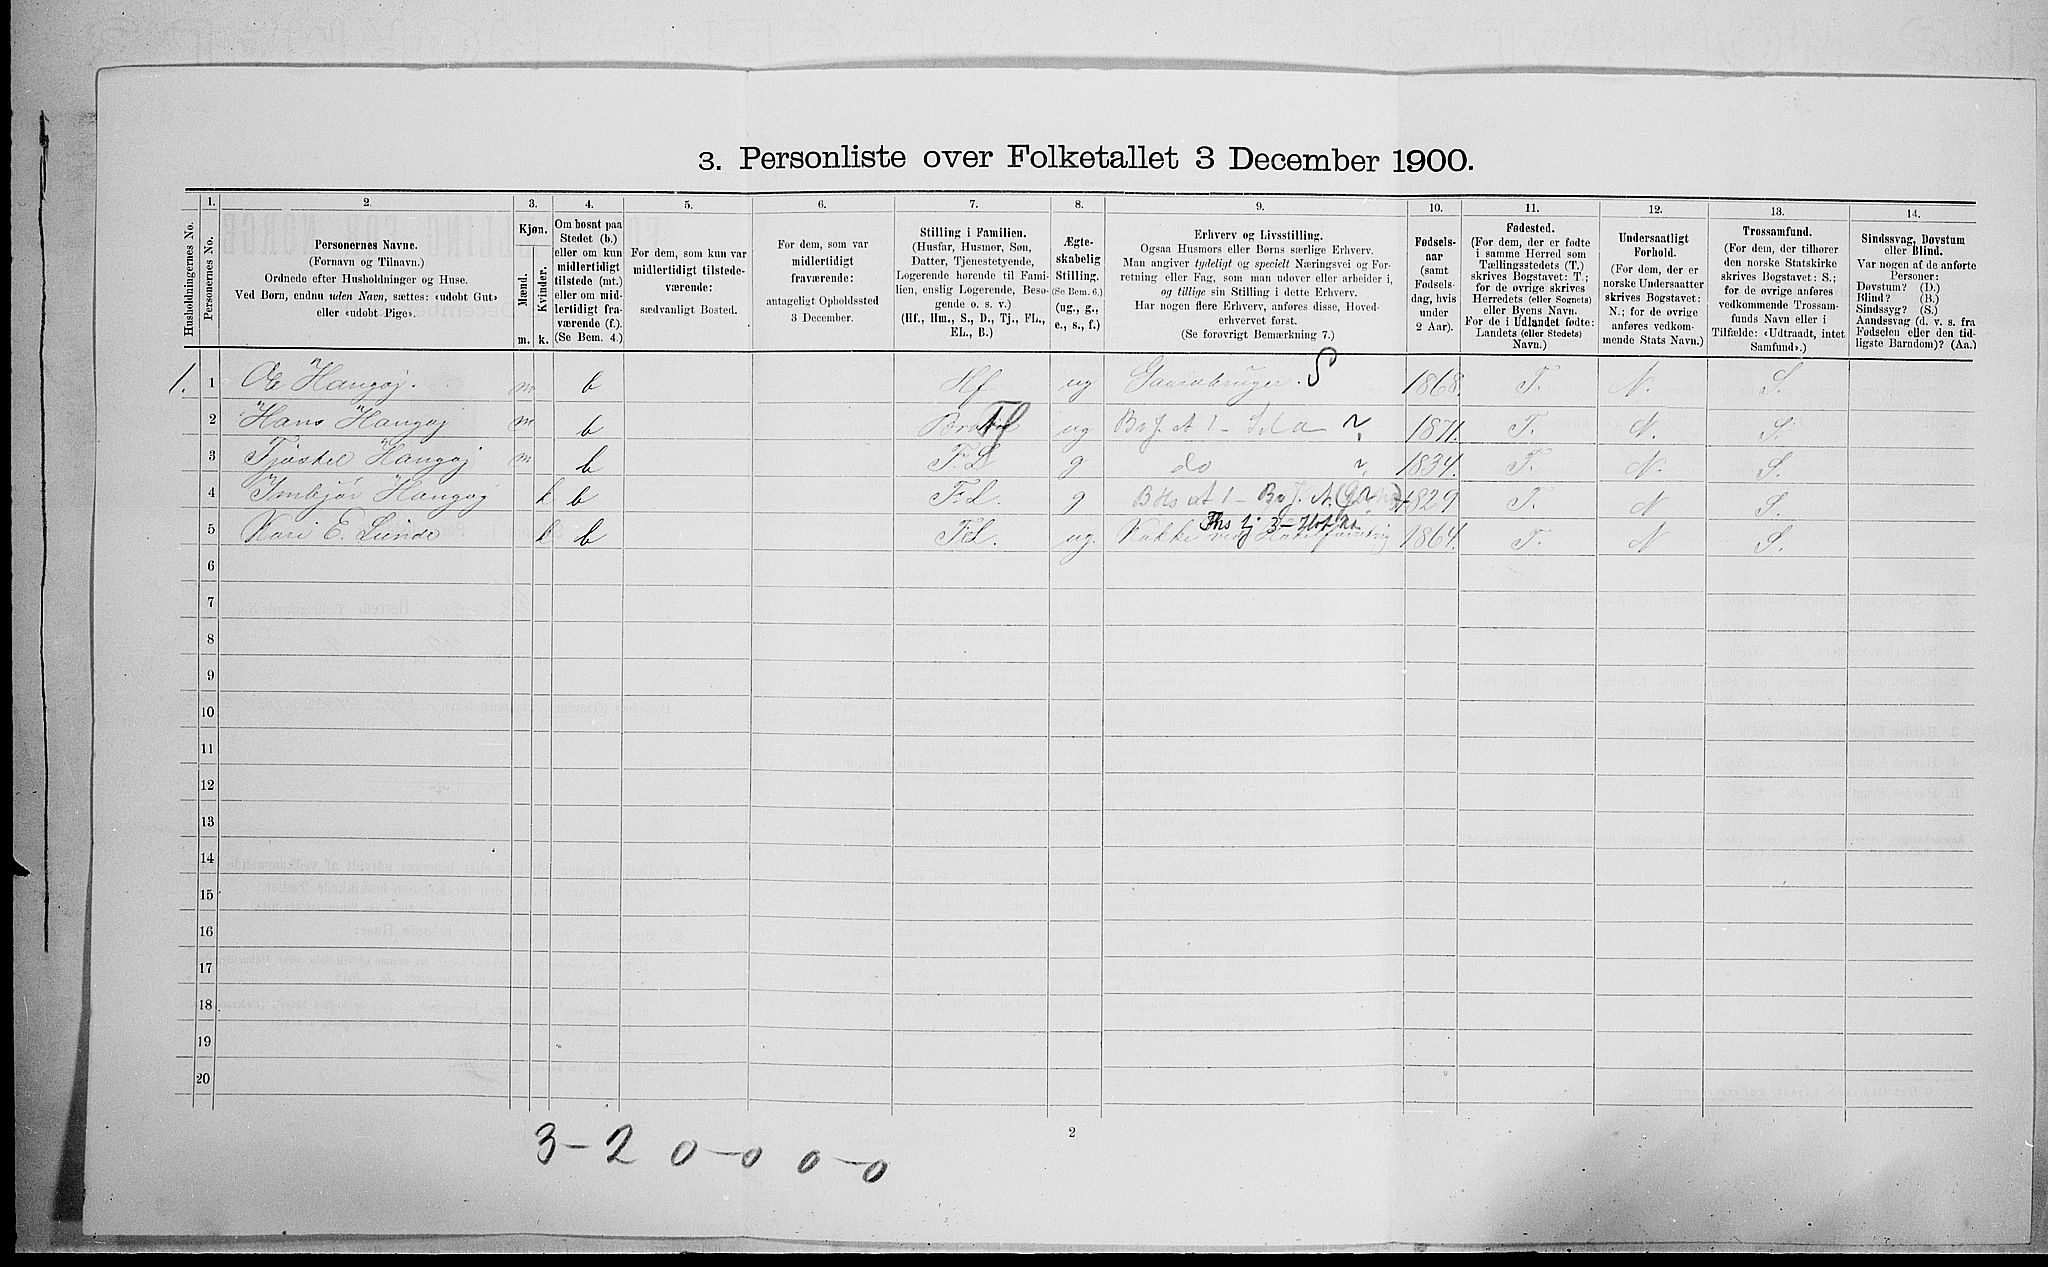 3. Personliste over Folketallet 3 December 1900.
Husholdningernes No.
1. Personernes No.
2. Personernes Navne.
(Fornavn og Tilnavn.)
Ordnede efter Husholdninger og Huse.
Ved Børn, endnu uden Navn, sættes: «udøbt Gut»
eller «udøbt Pige».
3. Kjøn.
Mænd. Kvinder.
m. k.
4. Om bosat paa
Stedet (b.)
eller om kun
midlertidigt
tilstede (mt.)
eller om mid-
lertidigt fra-
værende (f.).
(Se Bem. 4.)
5. For dem, som kun var
midlertidigt tilstede-
værende:
sædvanligt Bosted.
6. For dem, som var
midlertidigt
fraværende:
antageligt Opholdssted
3 December.
7. Stilling i Familien.
(Husfar, Husmor, Søn,
Datter, Tjenestetyende,
Logerende hørende til Fami-
lien, enslig Logerende, Besø-
gende o. s. v.)
(Hf., Hm., S., D., Tj., FL.,
EL., B.)
8. Ægte-
skabelig
Stilling.
(Se Bem. 6.)
(ug., g.,
e., s., f.)
9. Erhverv og Livsstilling.
Ogsaa Husmors eller Børns særlige Erhverv.
Man angiver tydeligt og specielt Næringsvei og For-
retning eller Fag, som man udøver eller arbeider i,
og tillige sin Stilling i dette Erhverv.
Har nogen flere Erhverv, anføres disse, Hoved-
erhvervet først.
(Se forøvrigt Bemærkning 7.)
10. Fødsels-
aar
(samt
Fødsels-
dag, hvis
under
2 Aar).
11. Fødested.
(For dem, der er fødte
i samme Herred som
Tællingsstedets (T.)
skrives Bogstavet: T.;
for de øvrige skrives
Herredets (eller Sognets)
eller Byens Navn.
For de i Udlandet fødte:
Landets (eller Stedets)
Navn.)
12. Undersaatligt
Forhold.
(For dem, der er
norske Undersaatter
skrives Bogstavet:
N.; for de øvrige
anføres vedkom-
mende Stats Navn.)
13. Trossamfund.
(For dem, der tilhører
den norske Statskirke
skrives Bogstavet: S.;
for de øvrige anføres
vedkommende Trossam-
funds Navn eller i
Tilfælde: «Udtraadt, intet
Samfund».)
14. Sindssvag, Døvstum
eller Blind.
Var nogen af de anførte
Personer:
Døvstum? (D.)
Blind? (B.)
Sindssyg? (S.)
Aandssvag (d. v. s. fra
Fødselen eller den tid-
ligste Barndom)? (Aa.)
1. 1 Haugøj. m b Hf ug Gaardbruger. S 1868 T. N. S.
2 Hans Haugøj m b FL ug 1871. T. N. S.
3 Haugøj m b F.L g do 1834. T. N. S.
4 Haugøj k b F.L. g 1829 T. N S.
5 Kari E. Lunde k b F.L. ug. 1864. T. N S.
6
7
8
9
10
11
12
13
14
15
16
17
18
19
20
2
3-2 0-0 0-0